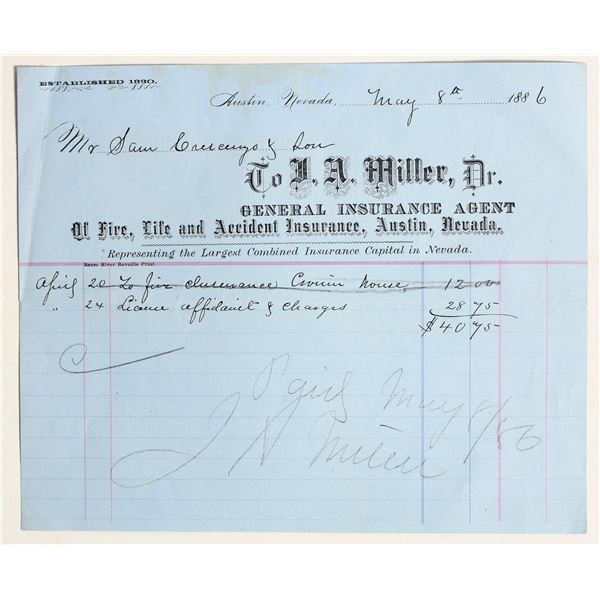 ESTABLISHED 1880.
Austin, Nevada, May 8th 1886
Mr Sam Crescenzo & Son
To J. A. Miller, Dr.
GENERAL INSURANCE AGENT
Of Fire, Life and Accident Insurance, Austin, Nevada.
Representing the Largest Combined Insurance Capital in Nevada.
Reese River Reveille Print
April 20 To fire Insurance house 12 00
" 24 License affidavit & charges 28 75
$40 75
Paid May 8/86
J A Miller